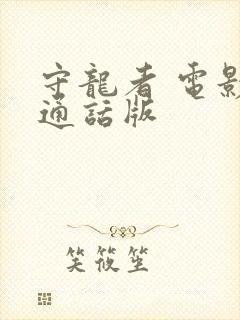 守龍者 電影
通話版
笑筱笙